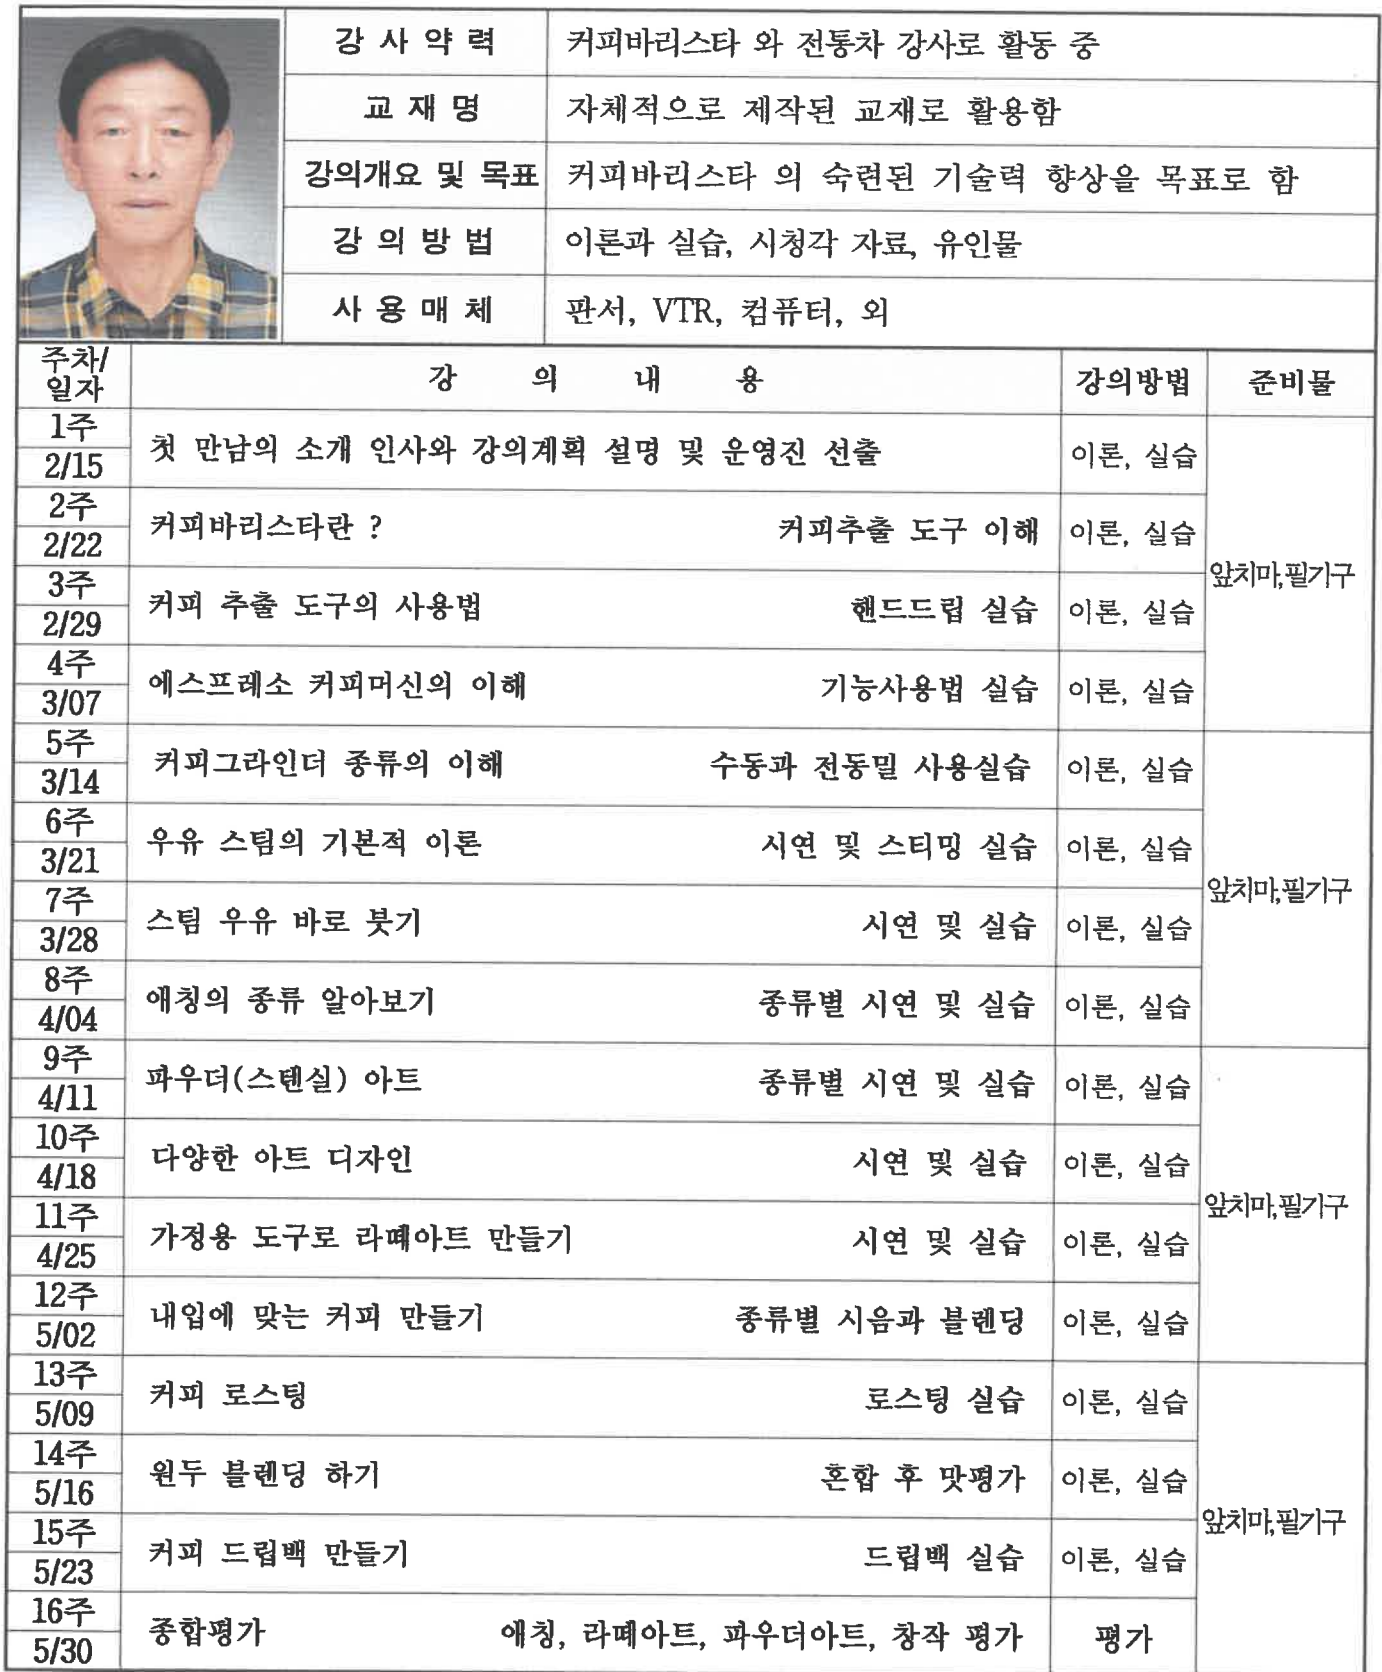 강 사 약 력 커피바리스타 와 전통차 강사로 활동 중
교 재 명 자체적으로 제작된 교재로 활용함
강의개요 및 목표 커피바리스타 의 숙련된 기술력 향상을 목표로 함
강 의 방 법 이론과 실습, 시청각 자료, 유인물
사 용 매 체 판서, VTR, 컴퓨터, 외
주차/
일자 강 의 내 용 강의방법 준비물
1주
2/15 첫 만남의 소개 인사와 강의계획 설명 및 운영진 선출 이론, 실습
2주
2/22 커피바리스타란 ? 커피추출 도구 이해 이론, 실습
앞치마,필기구
3주
2/29 커피 추출 도구의 사용법 핸드드립 실습 이론, 실습
4주
3/07 에스프레소 커피머신의 이해 기능사용법 실습 이론, 실습
5주
3/14 커피그라인더 종류의 이해 수동과 전동밀 사용실습 이론, 실습
6주
3/21 우유 스팀의 기본적 이론 시연 및 스티밍 실습 이론, 실습
앞치마,필기구
7주
3/28 스팀 우유 바로 붓기 시연 및 실습 이론, 실습
8주
4/04 애칭의 종류 알아보기 종류별 시연 및 실습 이론, 실습
9주
4/11 파우더(스텐실) 아트 종류별 시연 및 실습 이론, 실습
10주
4/18 다양한 아트 디자인 시연 및 실습 이론, 실습
앞치마,필기구
11주
4/25 가정용 도구로 라떼아트 만들기 시연 및 실습 이론, 실습
12주
5/02 내입에 맞는 커피 만들기 종류별 시음과 블렌딩 이론, 실습
13주
5/09 커피 로스팅 로스팅 실습 이론, 실습
14주
5/16 원두 블렌딩 하기 혼합 후 맛평가 이론, 실습
앞치마,필기구
15주
5/23 커피 드립백 만들기 드립백 실습 이론, 실습
16주
5/30 종합평가 애칭, 라떼아트, 파우더아트, 창작 평가 평가